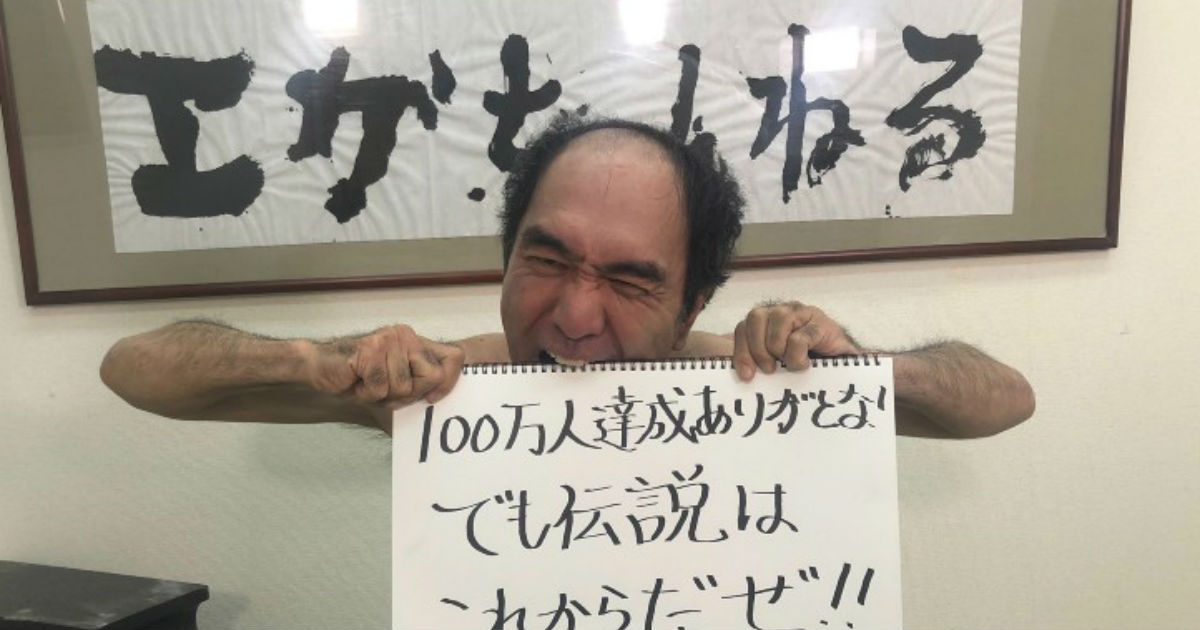 エガち んねる
100万人達成ありがとな!
でも伝説は
これからだぜ!!